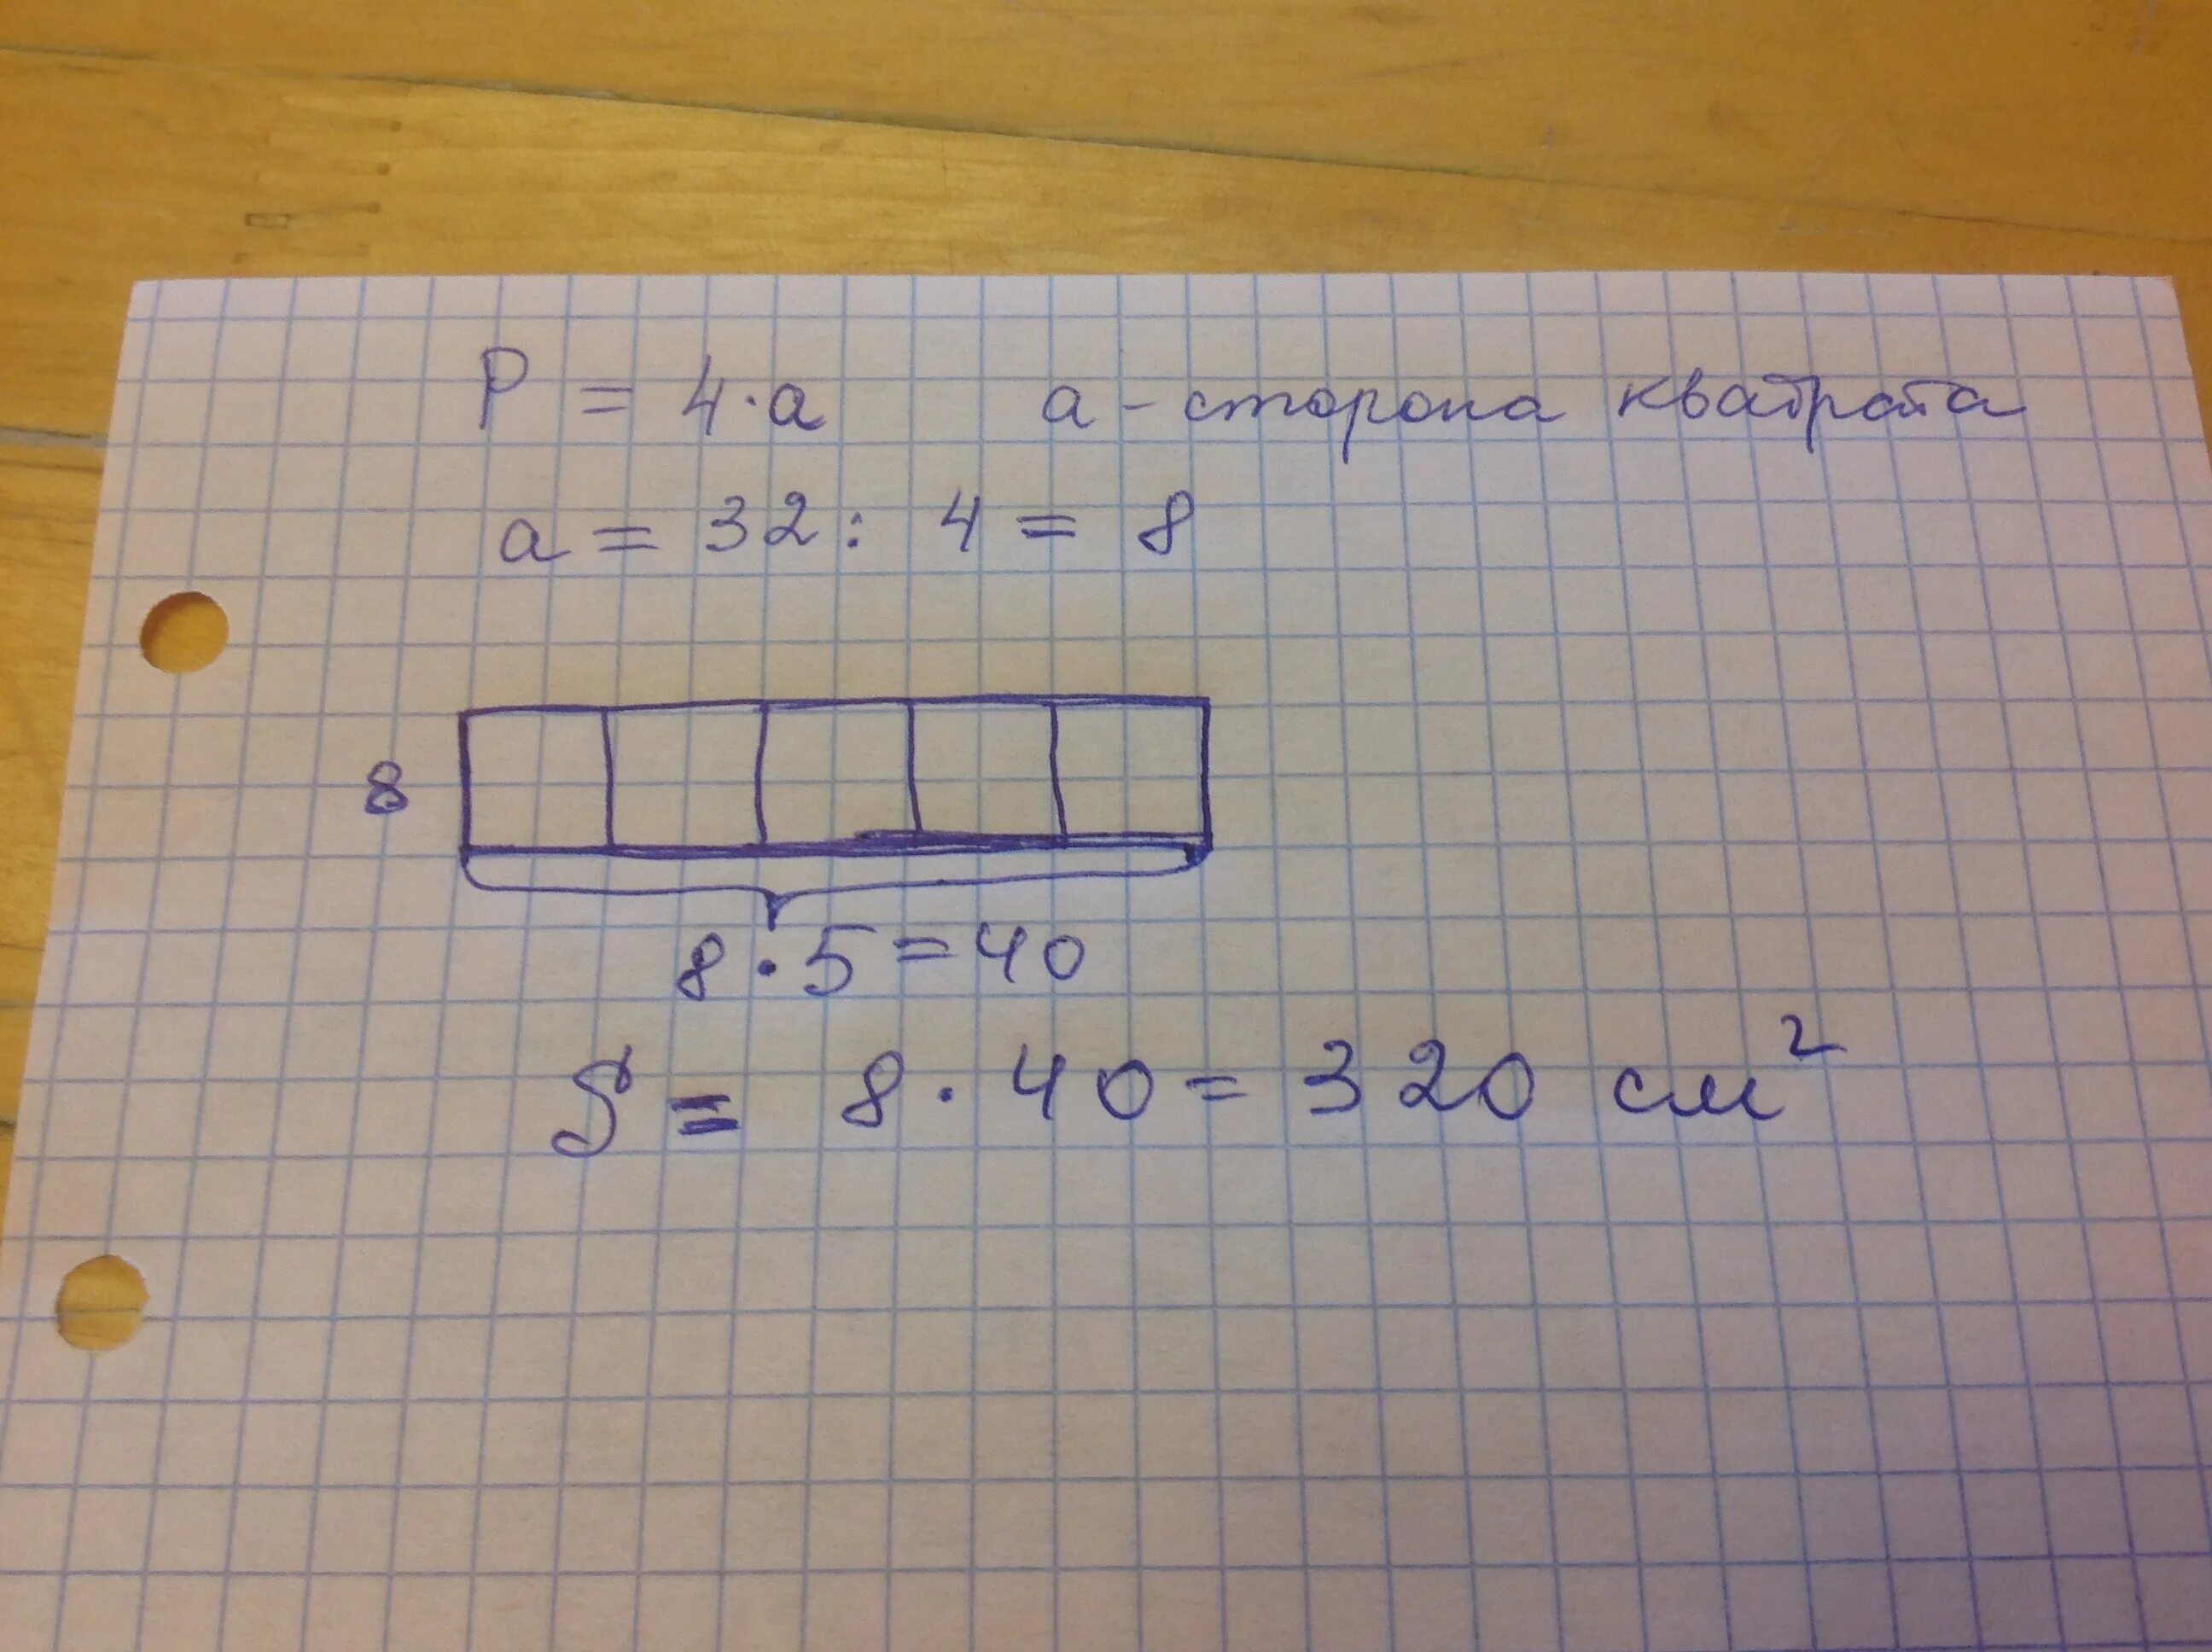 P = 4·a a - сторона квадрата
a = 32 : 4 = 8
8
8·5=40
S = 8·40= 320 см²